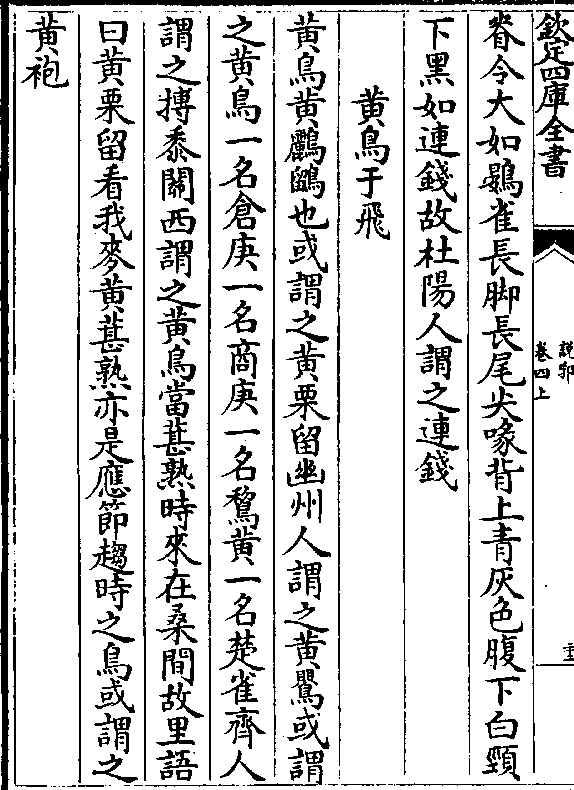 欽定四庫全書
說郛
卷四上
脊令大如鷃雀長脚長尾尖喙背上青灰色腹下白頸
下黑如連錢故杜陽人謂之連錢
黄鳥于飛
黄鳥黄鸝鶹也或謂之黄栗留幽州人謂之黄鸎或謂
之黄鳥一名倉庚一名商庚一名鵹黄一名楚雀齊人
謂之摶黍關西謂之黄鳥當葚熟時來在桑間故里語
曰黄栗留看我麥黄葚熟亦是應節趨時之鳥或謂之
黄袍